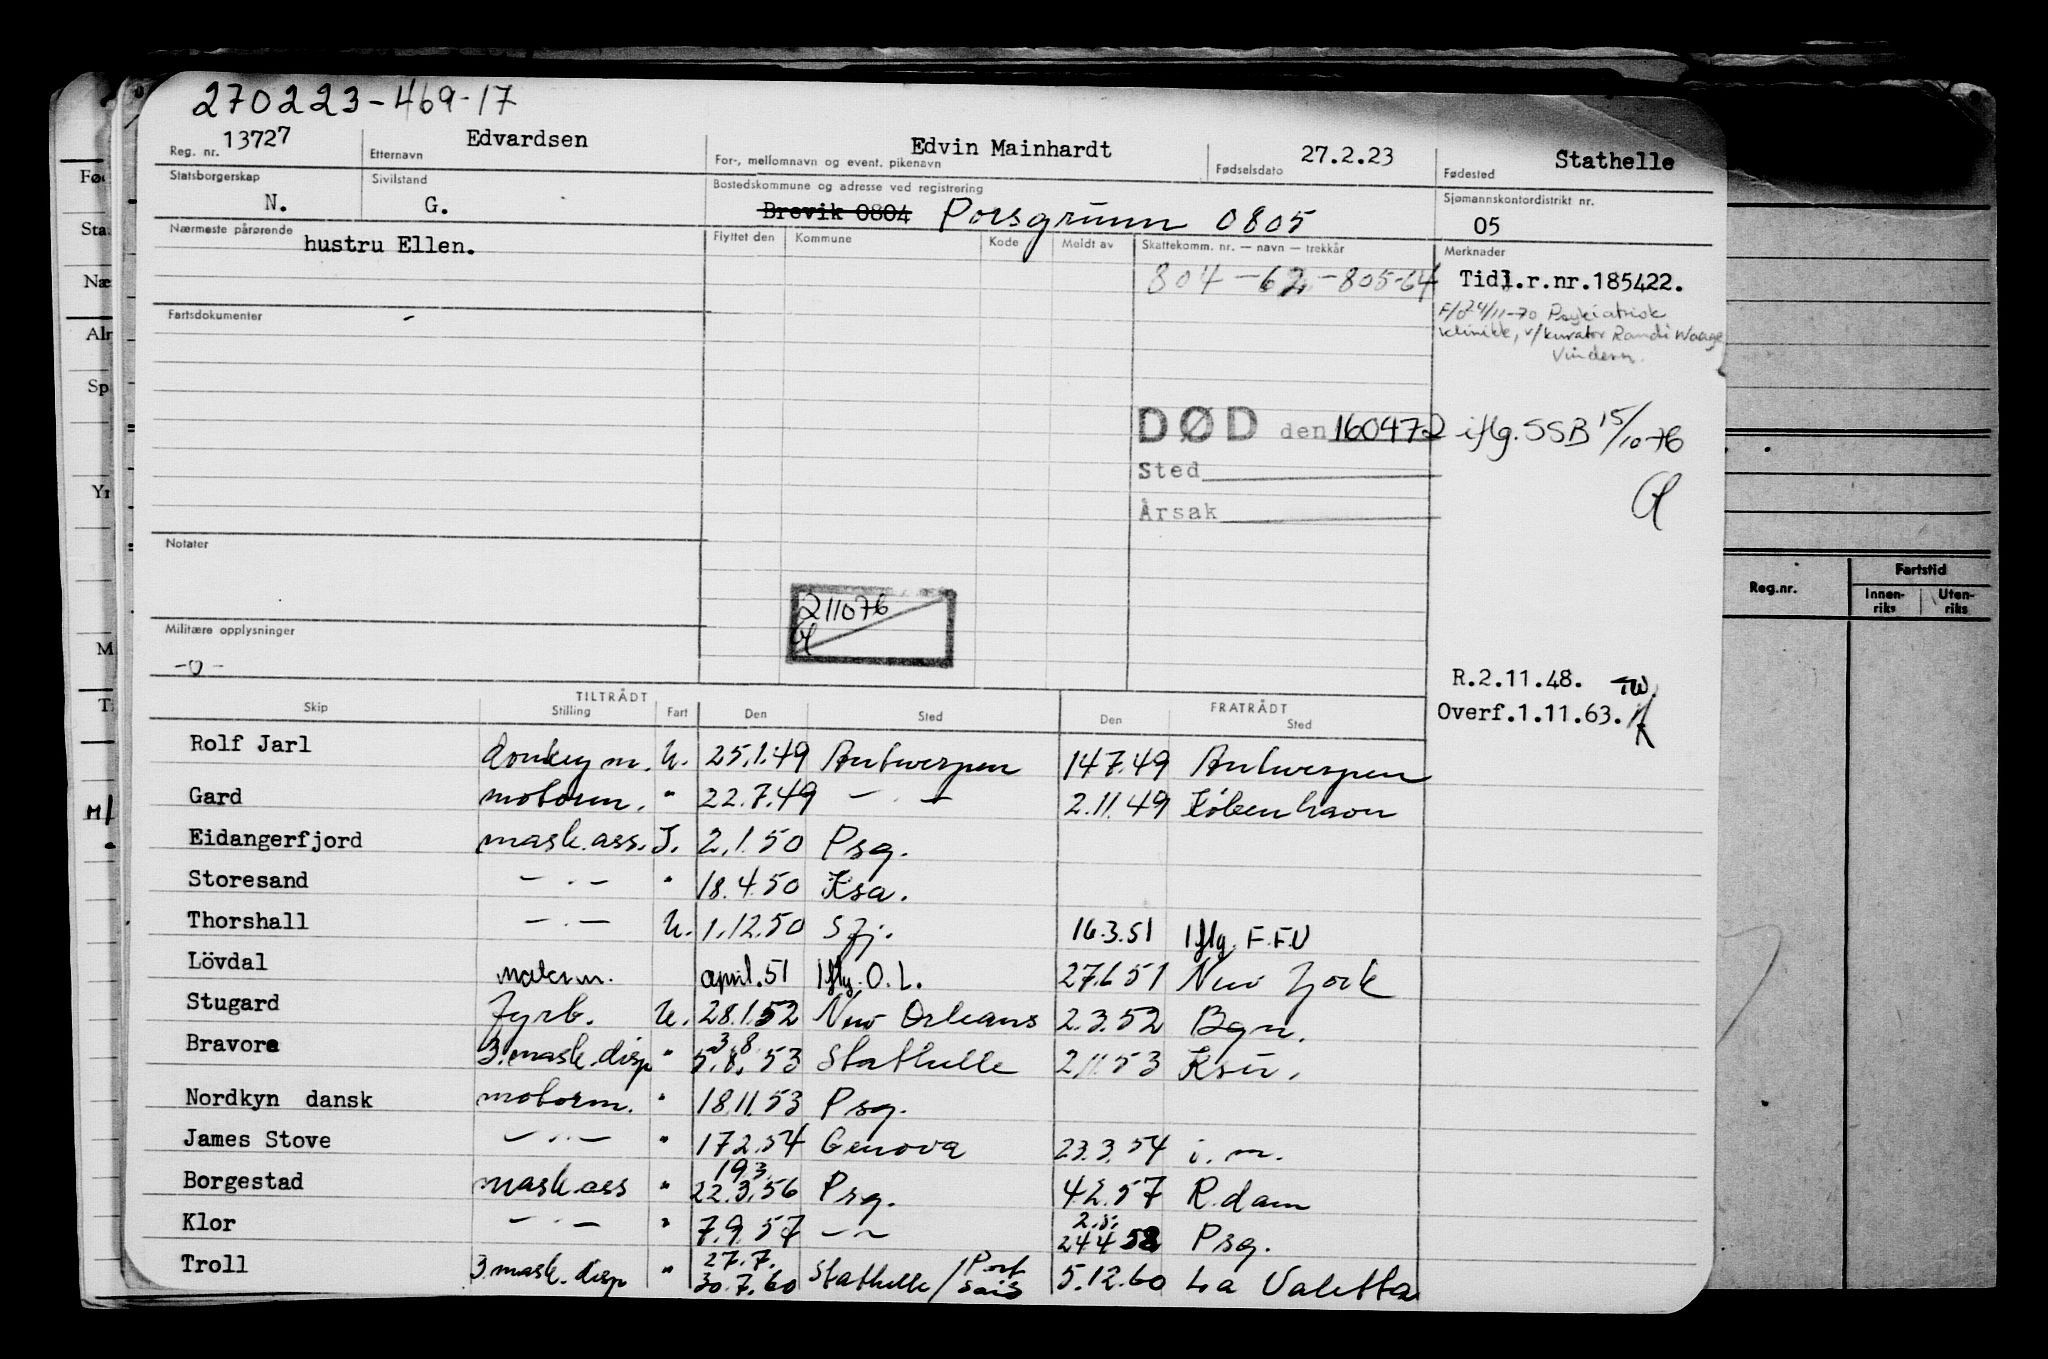 270223-469-17
Reg. nr. 13727 Etternavn Edvardsen For-, mellomnavn og event. pikenavn Edvin Mainhardt Fødselsdato 27.2.23 Fødested Stathelle
Statsborgerskap N. Sivilstand G. Bostedskommune og adresse ved registrering Brevik 0804 Porsgrunn 0805 Sjømannskontordistrikt nr. 05
Nærmeste pårørende hustru Ellen. Flyttet den Kommune Kode Meldt av Skattekomm. nr. — navn — trekkår Merknader
804-62-805-64 Tidl.r.nr.185422.
F/o 4/11-70 Psykiatrisk
klinikk, v/kurator Randi Waage
Vindern.
Fartsdokumenter -
DØD den 160472 iflg. SSB 15/10-76
Sted
Årsak
Notater
211076
Militære opplysninger
-0-
R.2.11.48. TW.
Overf.1.11.63.
TILTRÅDT FRATRÅDT
Skip Stilling Fart Den Sted Den Sted
Rolf Jarl donkeym. U. 25.1.49 Antwerpen 14.7.49 Antwerpen
Gard motorm. " 22.7.49 — . — 2.11.49 København
Eidangerfjord mask.ass. I. 2.1.50 Psg.
Storesand — . — " 18.4.50 Ksa.
Thorshall — . — U. 1.12.50 Sfj. 16.3.51 Iflg. F.F.U
Lövdal motorm. april.51 Iflg. O.L. 27.6.51 New York
Stugard Fyrb. U. 28.1.52 New Orleans 2.3.52 Bgn.
3.8.
Bravore 3.mask.disp " 5.8.53 Stathelle 2.11.53 Ksu.
Nordkyn dansk motorm. " 18.11.53 Psg.
James Stove — . — " 17.2.54 Genova 23.3.54 i.m.
19.3.
Borgestad mask.ass " 22.3.56 Psg. 4.2.57 R.dam
2.5.
Klor — . — " 7.9.57 — — 24.4.58 Psg.
27.7.
Troll 3.mask.disp " 30.7.60 Stathelle/Port Said 5.12.60 La Valetta
Reg.nr. Fartstid
Innen-riks Uten-riks